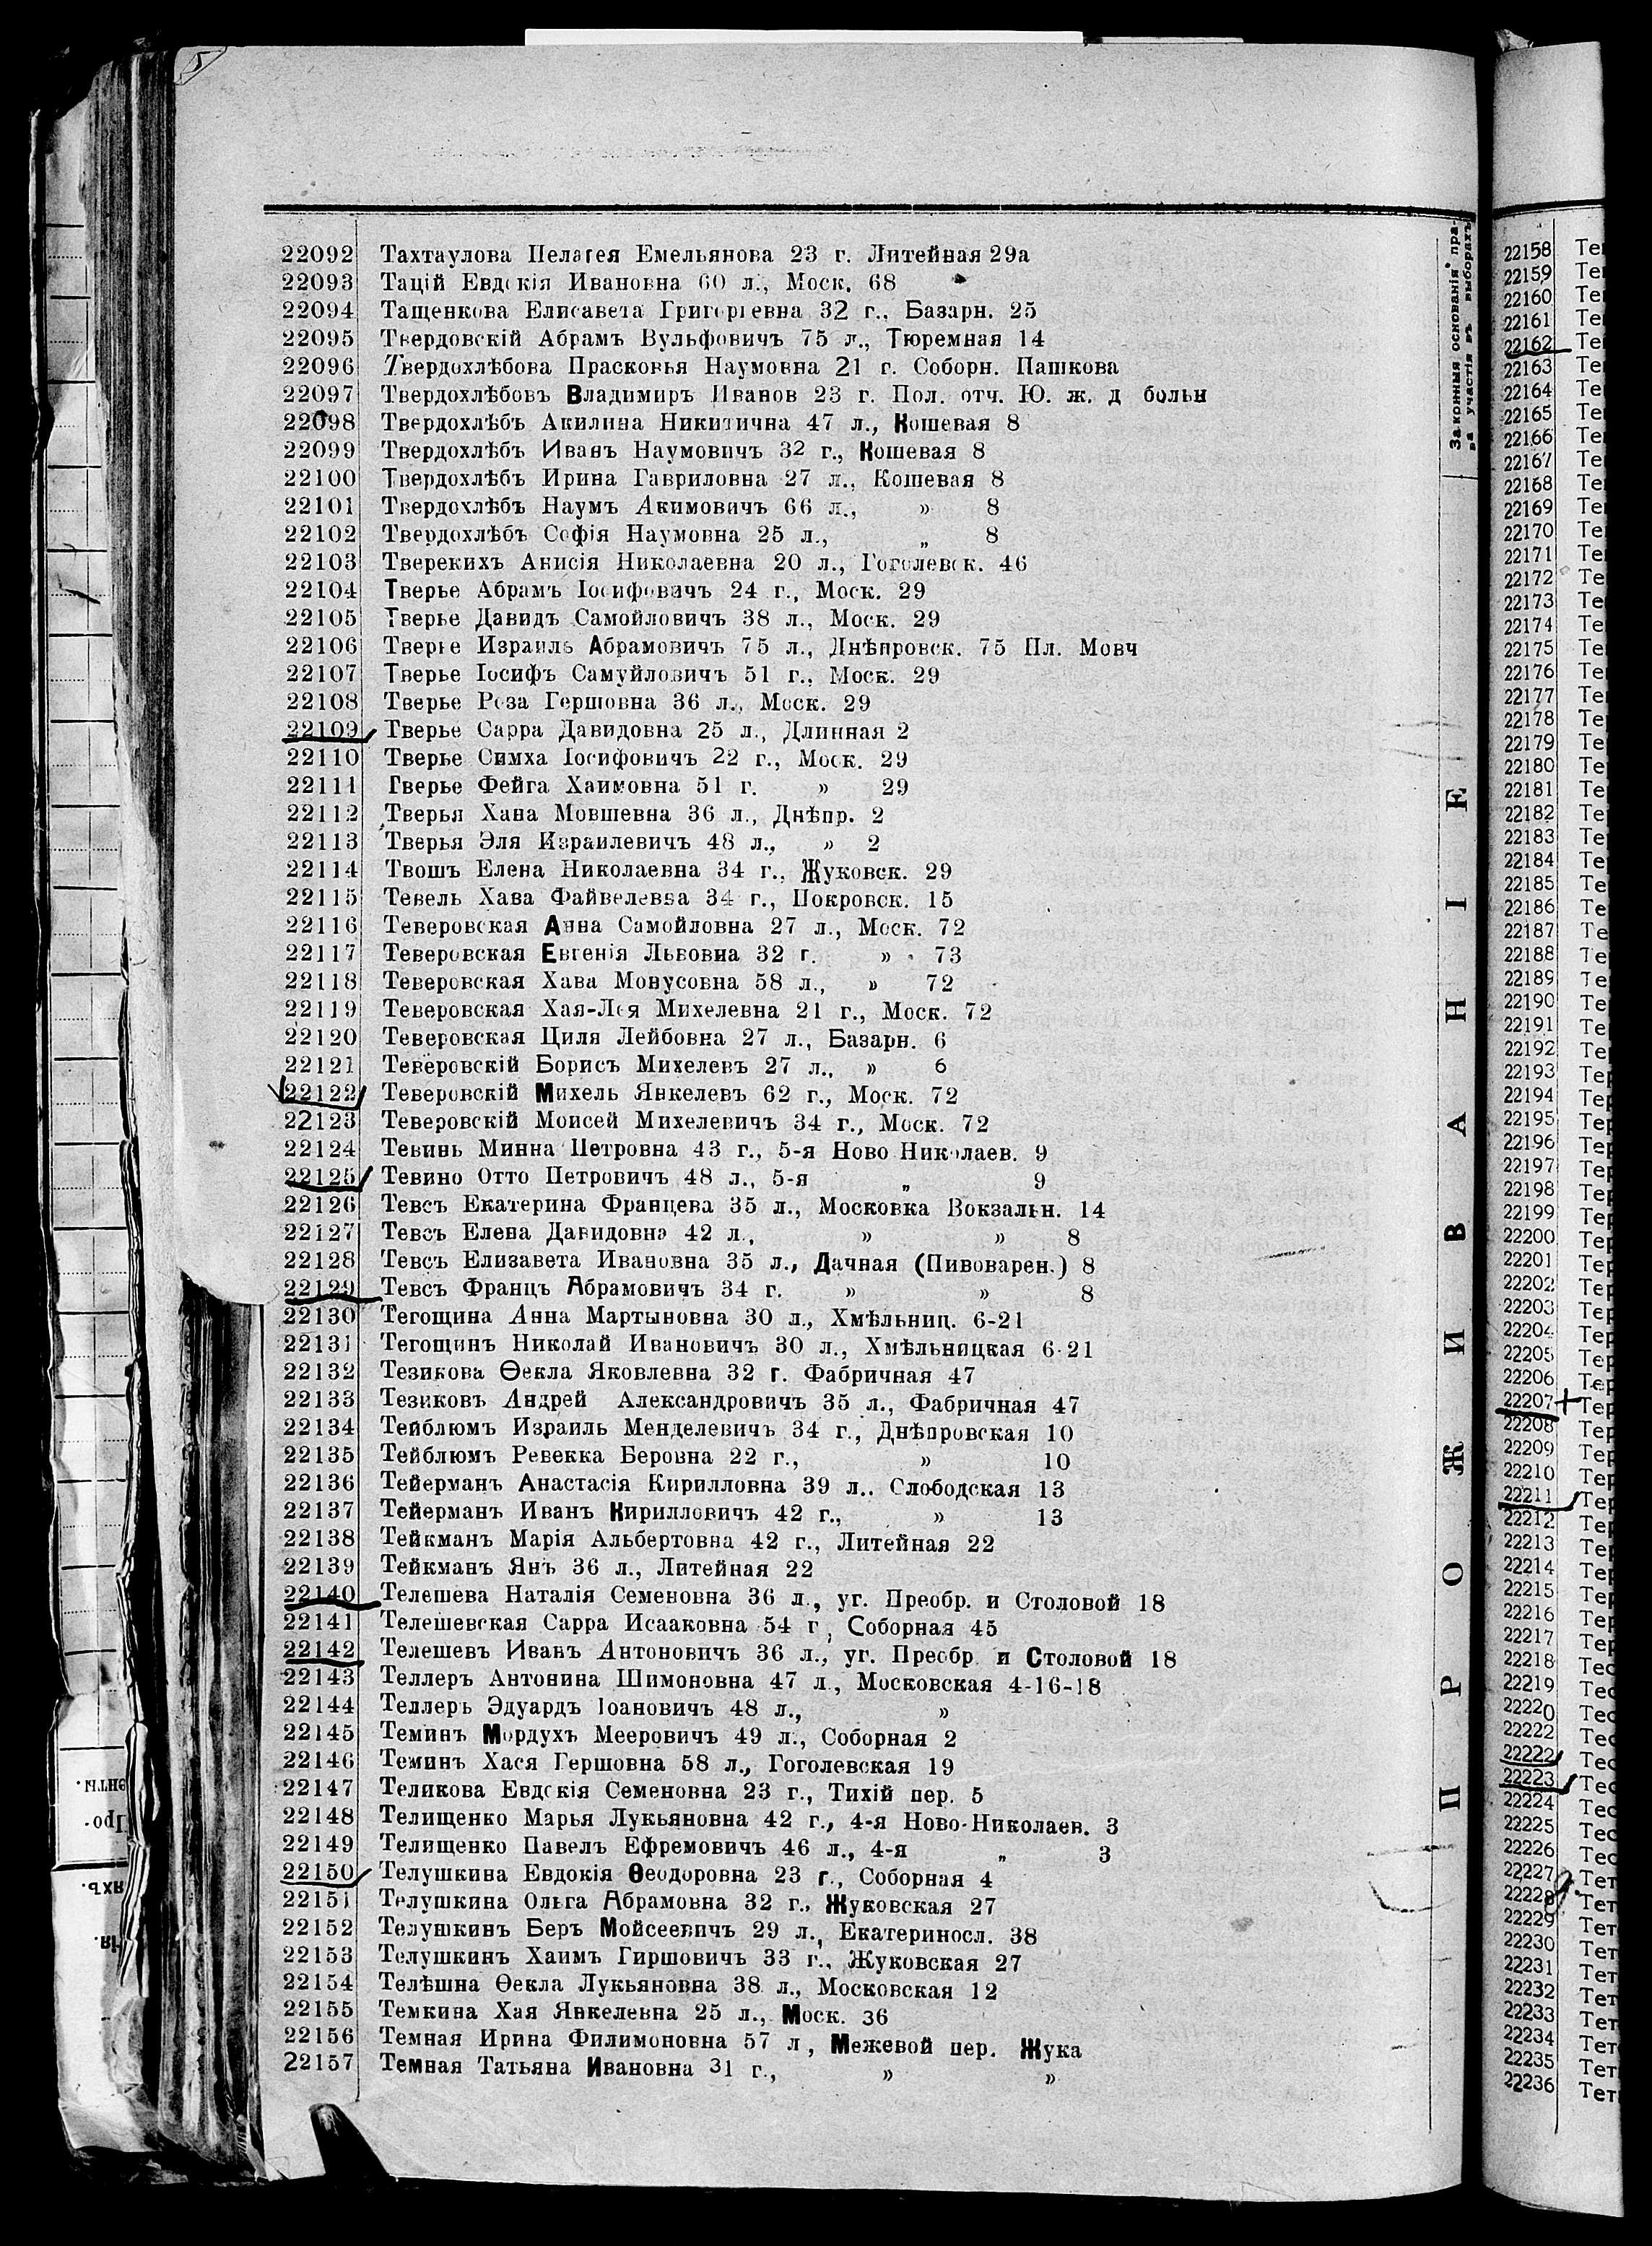 22092 Тахтаулова Пелагея Емельянова 23 г. Литейная 29а
22093 Тацій Евдокія Ивановна 60 л., Моск. 68
22094 Тащенкова Елисавета Григорьевна 32 г., Базарн. 25
22095 Твердовскій Абрамъ Вульфовичъ 75 л., Тюремная 14
22096 Твердохлѣбова Прасковья Наумовна 21 г. Соборн. Пашкова
22097 Твердохлѣбовъ Владимиръ Иванов 23 г. Пол. отч. Ю. ж. д больн
22098 Твердохлѣбъ Акилина Никитична 47 л., Кошевая 8
22099 Твердохлѣбъ Иванъ Наумовичъ 32 г., Кошевая 8
22100 Твердохлѣбъ Ирина Гавриловна 27 л., Кошевая 8
22101 Твердохлѣбъ Наумъ Акимовичъ 66 л., » 8
22102 Твердохлѣбъ Софія Наумовна 25 л., „ 8
22103 Тверекихъ Анисія Николаевна 20 л., Гоголевск. 46
22104 Тверье Абрамъ Іосифовичъ 24 г., Моск. 29
22105 Тверье Давидъ Самойловичъ 38 л., Моск. 29
22106 Тверье Израиль Абрамовичъ 75 л., Днѣпровск. 75 Пл. Мовч
22107 Тверье Іосифъ Самуйловичъ 51 г., Моск. 29
22108 Тверье Роза Гершовна 36 л., Моск. 29
22109 Тверье Сарра Давидовна 25 л., Длинная 2
22110 Тверье Симха Іосифовичъ 22 г., Моск. 29
22111 Тверье Фейга Хаимовна 51 г. » 29
22112 Тверья Хана Мовшевна 36 л., Днѣпр. 2
22113 Тверья Эля Израилевичъ 48 л., » 2
22114 Твошъ Елена Николаевна 34 г., Жуковск. 29
22115 Тевель Хава Файвелевна 34 г., Покровск. 15
22116 Теверовская Анна Самойловна 27 л., Моск. 72
22117 Теверовская Евгенія Львовна 32 г. » 73
22118 Теверовская Хава Монусовна 58 л., » 72
22119 Теверовская Хая-Лея Михелевна 21 г., Моск. 72
22120 Теверовская Циля Лейбовна 27 л., Базарн. 6
22121 Теверовскій Борисъ Михелевъ 27 л., » 6
22122 Теверовскій Михель Янкелевъ 62 г., Моск. 72
22123 Теверовскій Моисей Михелевичъ 34 г., Моск. 72
22124 Тевинь Минна Петровна 43 г., 5-я Ново Николаев. 9
22125 Тевино Отто Петровичъ 48 л., 5-я „ 9
22126 Тевсъ Екатерина Францева 35 л., Московка Вокзальн. 14
22127 Тевсъ Елена Давидовна 42 л., » » 8
22128 Тевсъ Елизавета Ивановна 35 л., Дачная (Пивоварен.) 8
22129 Тевсъ Францъ Абрамовичъ 34 г. » » 8
22130 Тегощина Анна Мартыновна 30 л., Хмѣльниц. 6-21
22131 Тегощинъ Николай Ивановичъ 30 л., Хмѣльницкая 6-21
22132 Тезикова Ѳекла Яковлевна 32 г. Фабричная 47
22133 Тезиковъ Андрей Александровичъ 35 л., Фабричная 47
22134 Тейблюмъ Израиль Менделевичъ 34 г., Днѣпровская 10
22135 Тейблюмъ Ревекка Беровна 22 г., » 10
22136 Тейерманъ Анастасія Кирилловна 39 л.. Слободская 13
22137 Тейерманъ Иванъ Кирилловичъ 42 г., » 13
22138 Тейкманъ Марія Альбертовна 42 г., Литейная 22
22139 Тейкманъ Янъ 36 л., Литейная 22
22140 Телешева Наталія Семеновна 36 л., уг. Преобр. и Столовой 18
22141 Телешевская Сарра Исааковна 54 г, Соборная 45
22142 Телешевъ Иванъ Антоновичъ 36 л., уг. Преобр. и Столовой 18
22143 Теллеръ Антонина Шимоновна 47 л., Московская 4-16-18
22144 Теллеръ Эдуардъ Іоановичъ 48 л., »
22145 Теминъ Мордухъ Мееровичъ 49 л., Соборная 2
22146 Теминъ Хася Гершовна 58 л., Гоголевская 19
22147 Теликова Евдокія Семеновна 23 г., Тихій пер. 5
22148 Телищенко Марья Лукьяновна 42 г., 4-я Ново-Николаев. 3
22149 Телищенко Павелъ Ефремовичъ 46 л., 4-я „ 3
22150 Телушкина Евдокія Ѳеодоровна 23 г., Соборная 4
22151 Телушкина Ольга Абрамовна 32 г., Жуковская 27
22152 Телушкинъ Беръ Мойсеевичъ 29 л., Екатериносл. 38
22153 Телушкинъ Хаимъ Гиршовичъ 33 г., Жуковская 27
22154 Телѣшна Ѳекла Лукьяновна 38 л., Московская 12
22155 Темкина Хая Янкелевна 25 л., Моск. 36
22156 Темная Ирина Филимоновна 57 л, Межевой пер. Жука
22157 Темная Татьяна Ивановна 31 г., » »
Законныя основанія пра-
ва участія въ выборахъ
ПРОЖИВАНІЕ
22158 Те
22159 Те
22160 Те
22161 Те
22162 Те
22163 Те
22164 Те
22165 Те
22166 Те
22167 Те
22168 Те
22169 Те
22170 Те
22171 Те
22172 Те
22173 Те
22174 Те
22175 Те
22176 Те
22177 Те
22178 Те
22179 Те
22180 Те
22181 Те
22182 Те
22183 Те
22184 Те
22185 Те
22186 Те
22187 Те
22188 Те
22189 Те
22190 Те
22191 Те
22192 Те
22193 Тер
22194 Тер
22195 Тер
22196 Тер
22197 Тер
22198 Тер
22199 Тер
22200 Тер
22201 Тер
22202 Тер
22203 Тер
22204 Тер
22205 Тер
22206 Тер
22207 Тер
22208 Тер
22209 Тер
22210 Тер
22211 Тер
22212 Тер
22213 Тер
22214 Тер
22215 Тер
22216 Тер
22217 Тер
22218 Тес
22219 Тес
22220 Тес
22222 Тес
22222 Тес
22223 Тес
22224 Тес
22225 Тес
22226 Тес
22227 Тет
22228 Тет
22229 Тет
22230 Тет
22231 Тет
22232 Тет
22233 Тет
22234 Тет
22235 Тет
22236 Тет